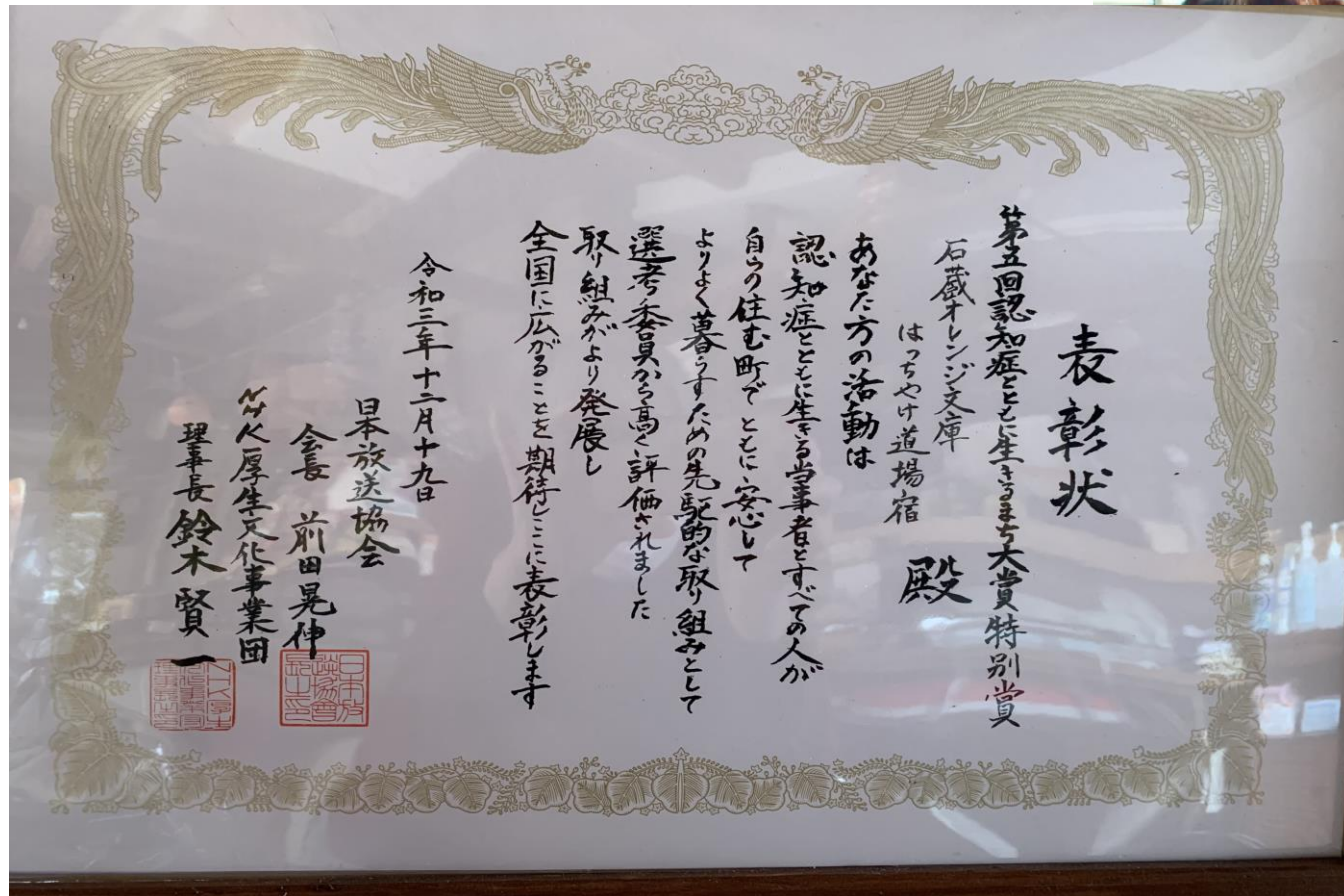 表彰状
第五回認知症とともに生きるまち大賞特別賞
石蔵オレンジ文庫
はっちゃけ道場宿
殿
あなた方の活動は
認知症とともに生きる当事者とすべての人が
自らの住む町でともに安心して
よりよく暮らすための先駆的な取り組みとして
選考委員から高く評価されました
取り組みがより発展し
全国に広がることを期待しここに表彰します
令和三年十二月十九日
日本放送協会
会長 前田晃伸
NHK厚生文化事業団
理事長 鈴木賢一